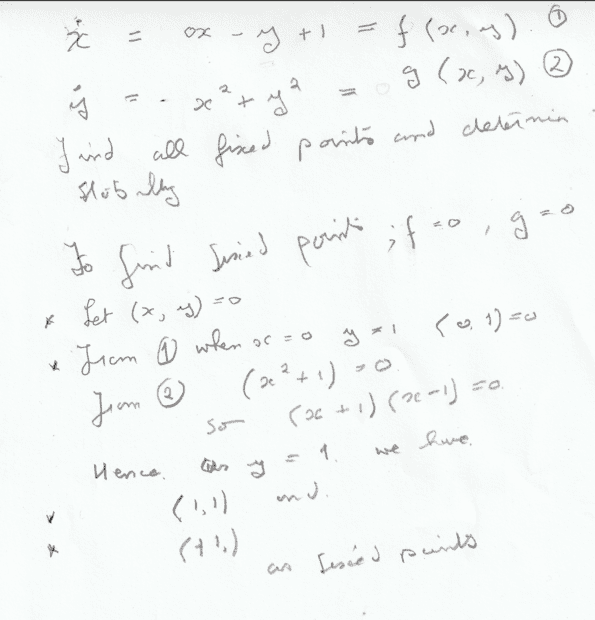 ẋ = 0x - y + 1 = f (x, y) ①
ẏ = - x² + y² = g (x, y) ②
Find all fixed points and determin
stability
To find fixed points ; f = 0 , g = 0
* Let (x, y) = 0
* From ① when x = 0 y = 1 (0, 1) = 0
From ② (x² + 1) = 0
so (x + 1) (x - 1) = 0
Hence as y = 1. we have
(1, 1) and
(+1,)
as fixed points